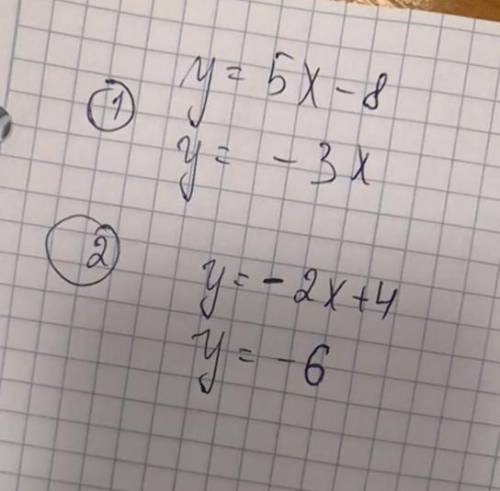 ① y = 5x - 8
y = - 3x
② y = - 2x + 4
y = - 6